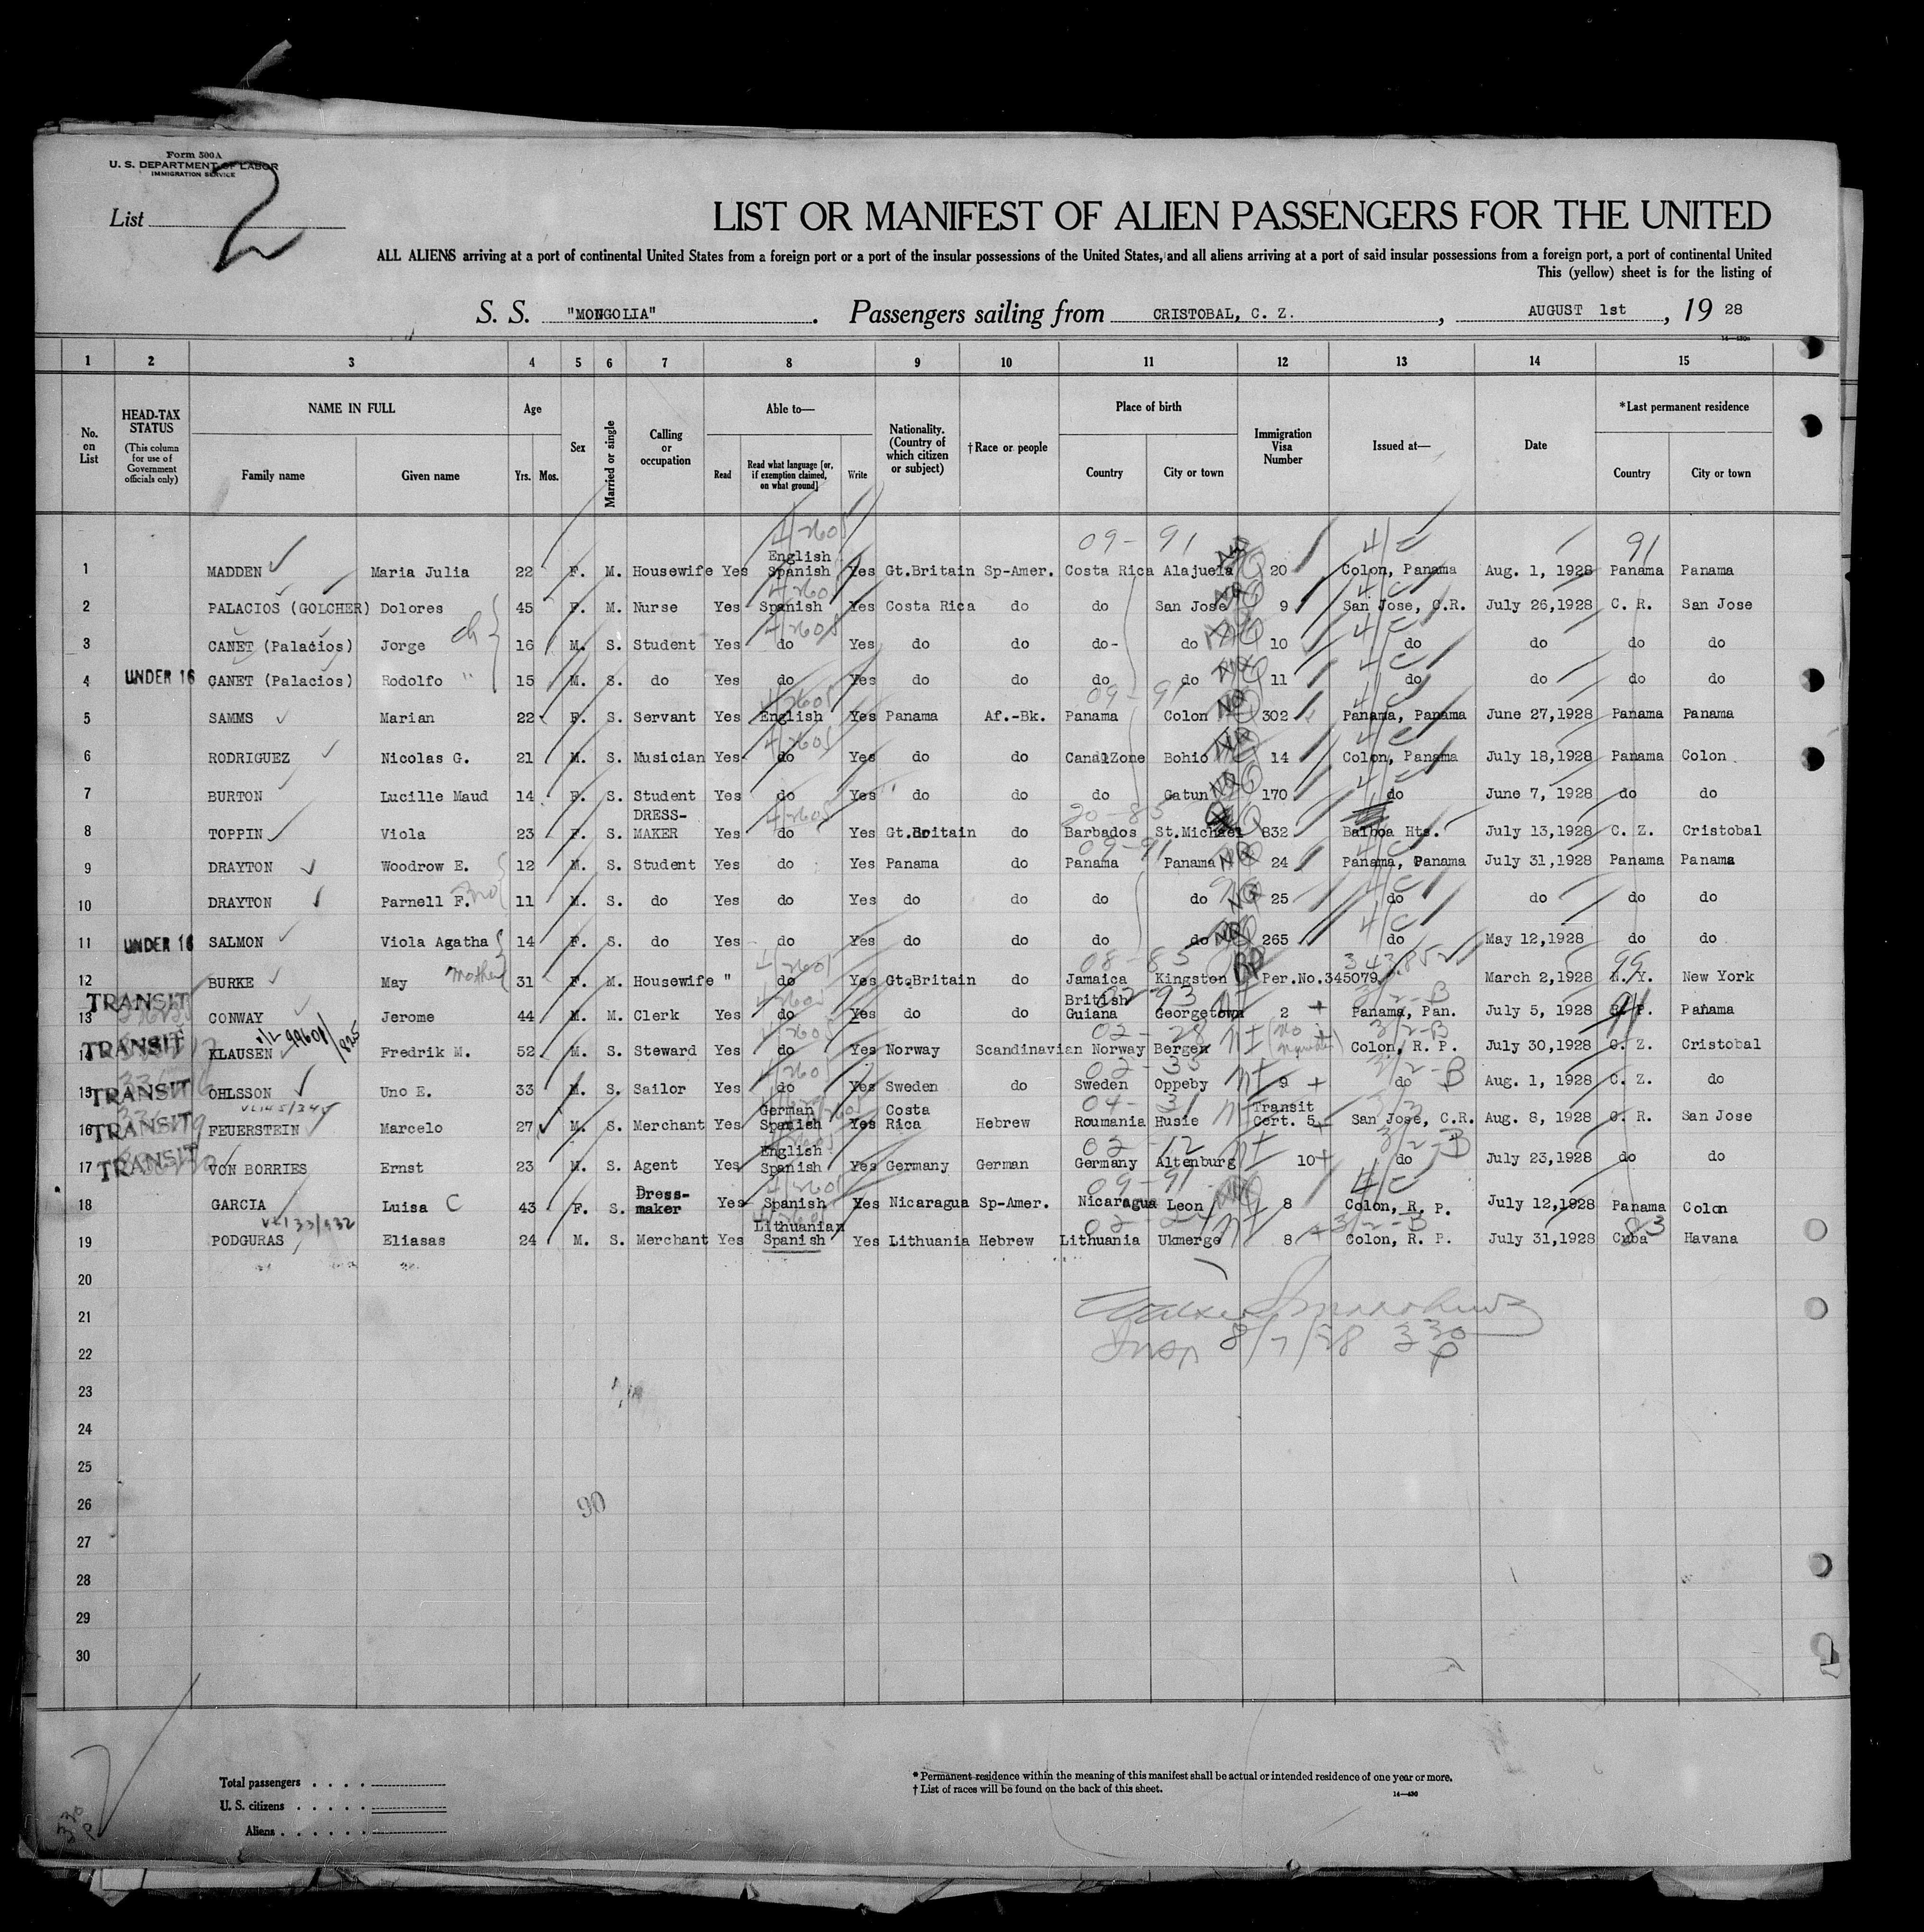 Form 500A
U. S. DEPARTMENT OF LABOR
IMMIGRATION SERVICE
List 2
LIST OR MANIFEST OF ALIEN PASSENGERS FOR THE UNITED
ALL ALIENS arriving at a port of continental United States from a foreign port or a port of the insular possessions of the United States, and all aliens arriving at a port of said insular possessions from a foreign port, a port of continental United
This (yellow) sheet is for the listing of
S. S. "MONGOLIA". Passengers sailing from CRISTOBAL, C. Z., AUGUST 1st, 19 28
1 2 3 4 5 6 7 8 9 10 11 12 13 14 15
No. on List
HEAD-TAX STATUS (This column for use of Government officials only)
NAME IN FULL Family name Given name
Age Yrs. Mos.
Sex
Married or single
Calling or occupation
Able to— Read Read what language [or, if exemption claimed, on what ground] Write
Nationality. (Country of which citizen or subject)
†Race or people
Place of birth Country City or town
Immigration Visa Number
Issued at—
Date
*Last permanent residence Country City or town
09 - 91 4/C 91
1 MADDEN Maria Julia 22 F. M. Housewife Yes English Spanish Yes Gt.Britain Sp-Amer. Costa Rica Alajuela 20 Colon, Panama Aug. 1, 1928 Panama Panama
2 PALACIOS (GOLCHER) Dolores 45 F. M. Nurse Yes Spanish Yes Costa Rica do do San Jose 9 San Jose, C.R. July 26,1928 C. R. San Jose
3 CANET (Palacios) Jorge 16 M. S. Student Yes do Yes do do do- do 10 do do do do
4 UNDER 16 CANET (Palacios) Rodolfo 15 M. S. do Yes do Yes do do do do 11 do do do do
5 SAMMS Marian 22 F. S. Servant Yes English Yes Panama Af.-Bk. Panama Colon 302 Panama, Panama June 27,1928 Panama Panama
6 RODRIGUEZ Nicolas G. 21 M. S. Musician Yes do Yes do do Canal Zone Bohio 14 Colon, Panama July 18,1928 Panama Colon
7 BURTON Lucille Maud 14 F. S. Student Yes do Yes do do do Gatun 170 do June 7, 1928 do do
8 TOPPIN Viola 23 F. S. DRESS-MAKER Yes do Yes Gt.Britain do Barbados St.Michael 832 Balboa Hts. July 13,1928 C. Z. Cristobal
9 DRAYTON Woodrow E. 12 M. S. Student Yes do Yes Panama do Panama Panama 24 Panama, Panama July 31,1928 Panama Panama
10 DRAYTON Parnell F. 11 M. S. do Yes do Yes do do do do 25 do do do do
11 UNDER 16 SALMON Viola Agatha 14 F. S. do Yes do Yes do do do do 265 do May 12,1928 do do
12 BURKE May mother 31 F. M. Housewife " do Yes Gt.Britain do Jamaica Kingston Per.No.345079 March 2,1928 N. Y. New York
13 TRANSIT CONWAY Jerome 44 M. M. Clerk Yes do Yes do do British Guiana Georgetown 2 Panama, Pan. July 5, 1928 R. P. Panama
14 TRANSIT KLAUSEN Fredrik M. 52 M. S. Steward Yes do Yes Norway Scandinavian Norway Bergen Colon, R. P. July 30,1928 C. Z. Cristobal
15 TRANSIT OHLSSON Uno E. 33 M. S. Sailor Yes do Yes Sweden do Sweden Oppeby 9 do Aug. 1, 1928 C. Z. do
16 TRANSIT FEUERSTEIN Marcelo 27 M. S. Merchant Yes German Spanish Yes Costa Rica Hebrew Roumania Husie Transit Cert. 5 San Jose, C.R. Aug. 8, 1928 C. R. San Jose
17 TRANSIT VON BORRIES Ernst 23 M. S. Agent Yes English Spanish Yes Germany German Germany Altenburg 10 do July 23,1928 do do
18 GARCIA Luisa C 43 F. S. Dress-maker Yes Spanish Yes Nicaragua Sp-Amer. Nicaragua Leon 8 Colon, R. P. July 12,1928 Panama Colon
19 PODGURAS Eliasas 24 M. S. Merchant Yes Lithuanian Spanish Yes Lithuania Hebrew Lithuania Ukmerge 8 Colon, R. P. July 31,1928 Cuba Havana
20
21
22 Insp 8/7/28 330 P
23
24
25
26 90
27
28
29
30
Total passengers
U. S. citizens
Aliens
* Permanent residence within the meaning of this manifest shall be actual or intended residence of one year or more.
† List of races will be found on the back of this sheet.
14—430
330 P